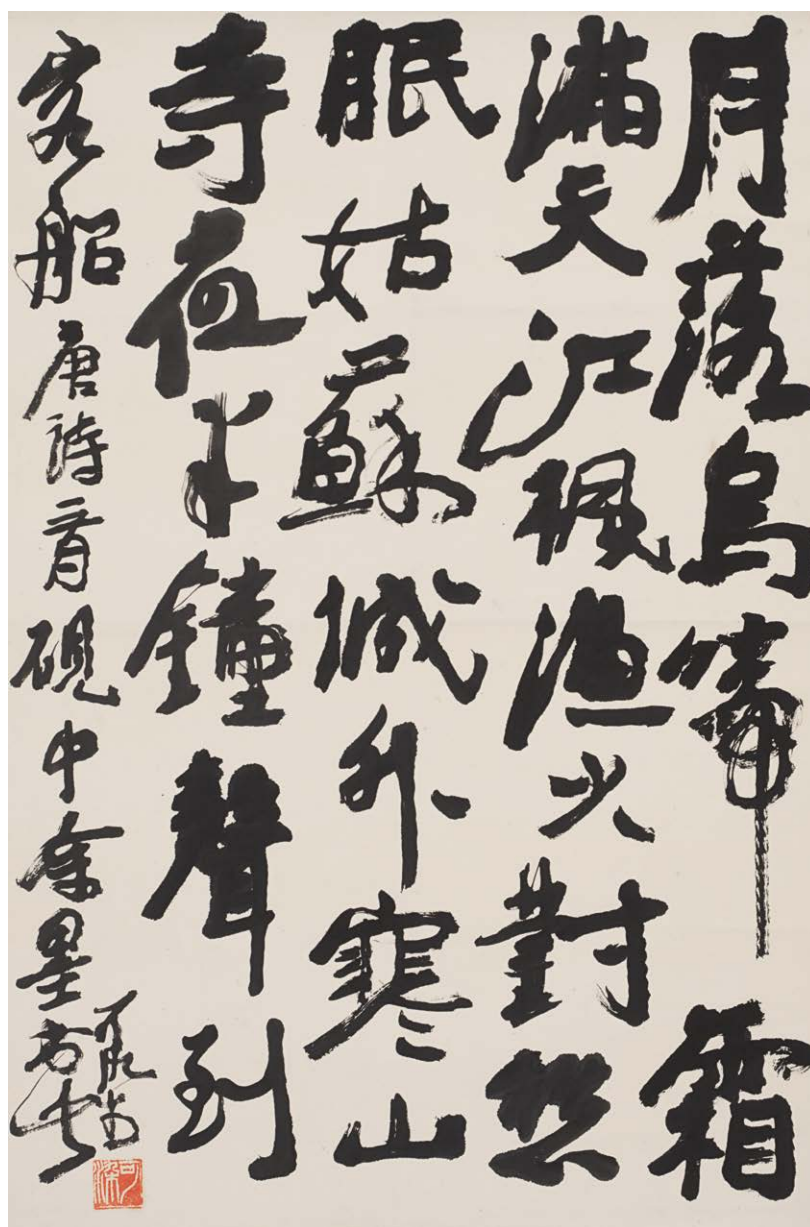 月落烏啼霜
滿天江楓漁火對愁
眠姑蘇城外寒山
寺夜半鐘聲到
客船唐詩一首硯中余墨
可染
可染